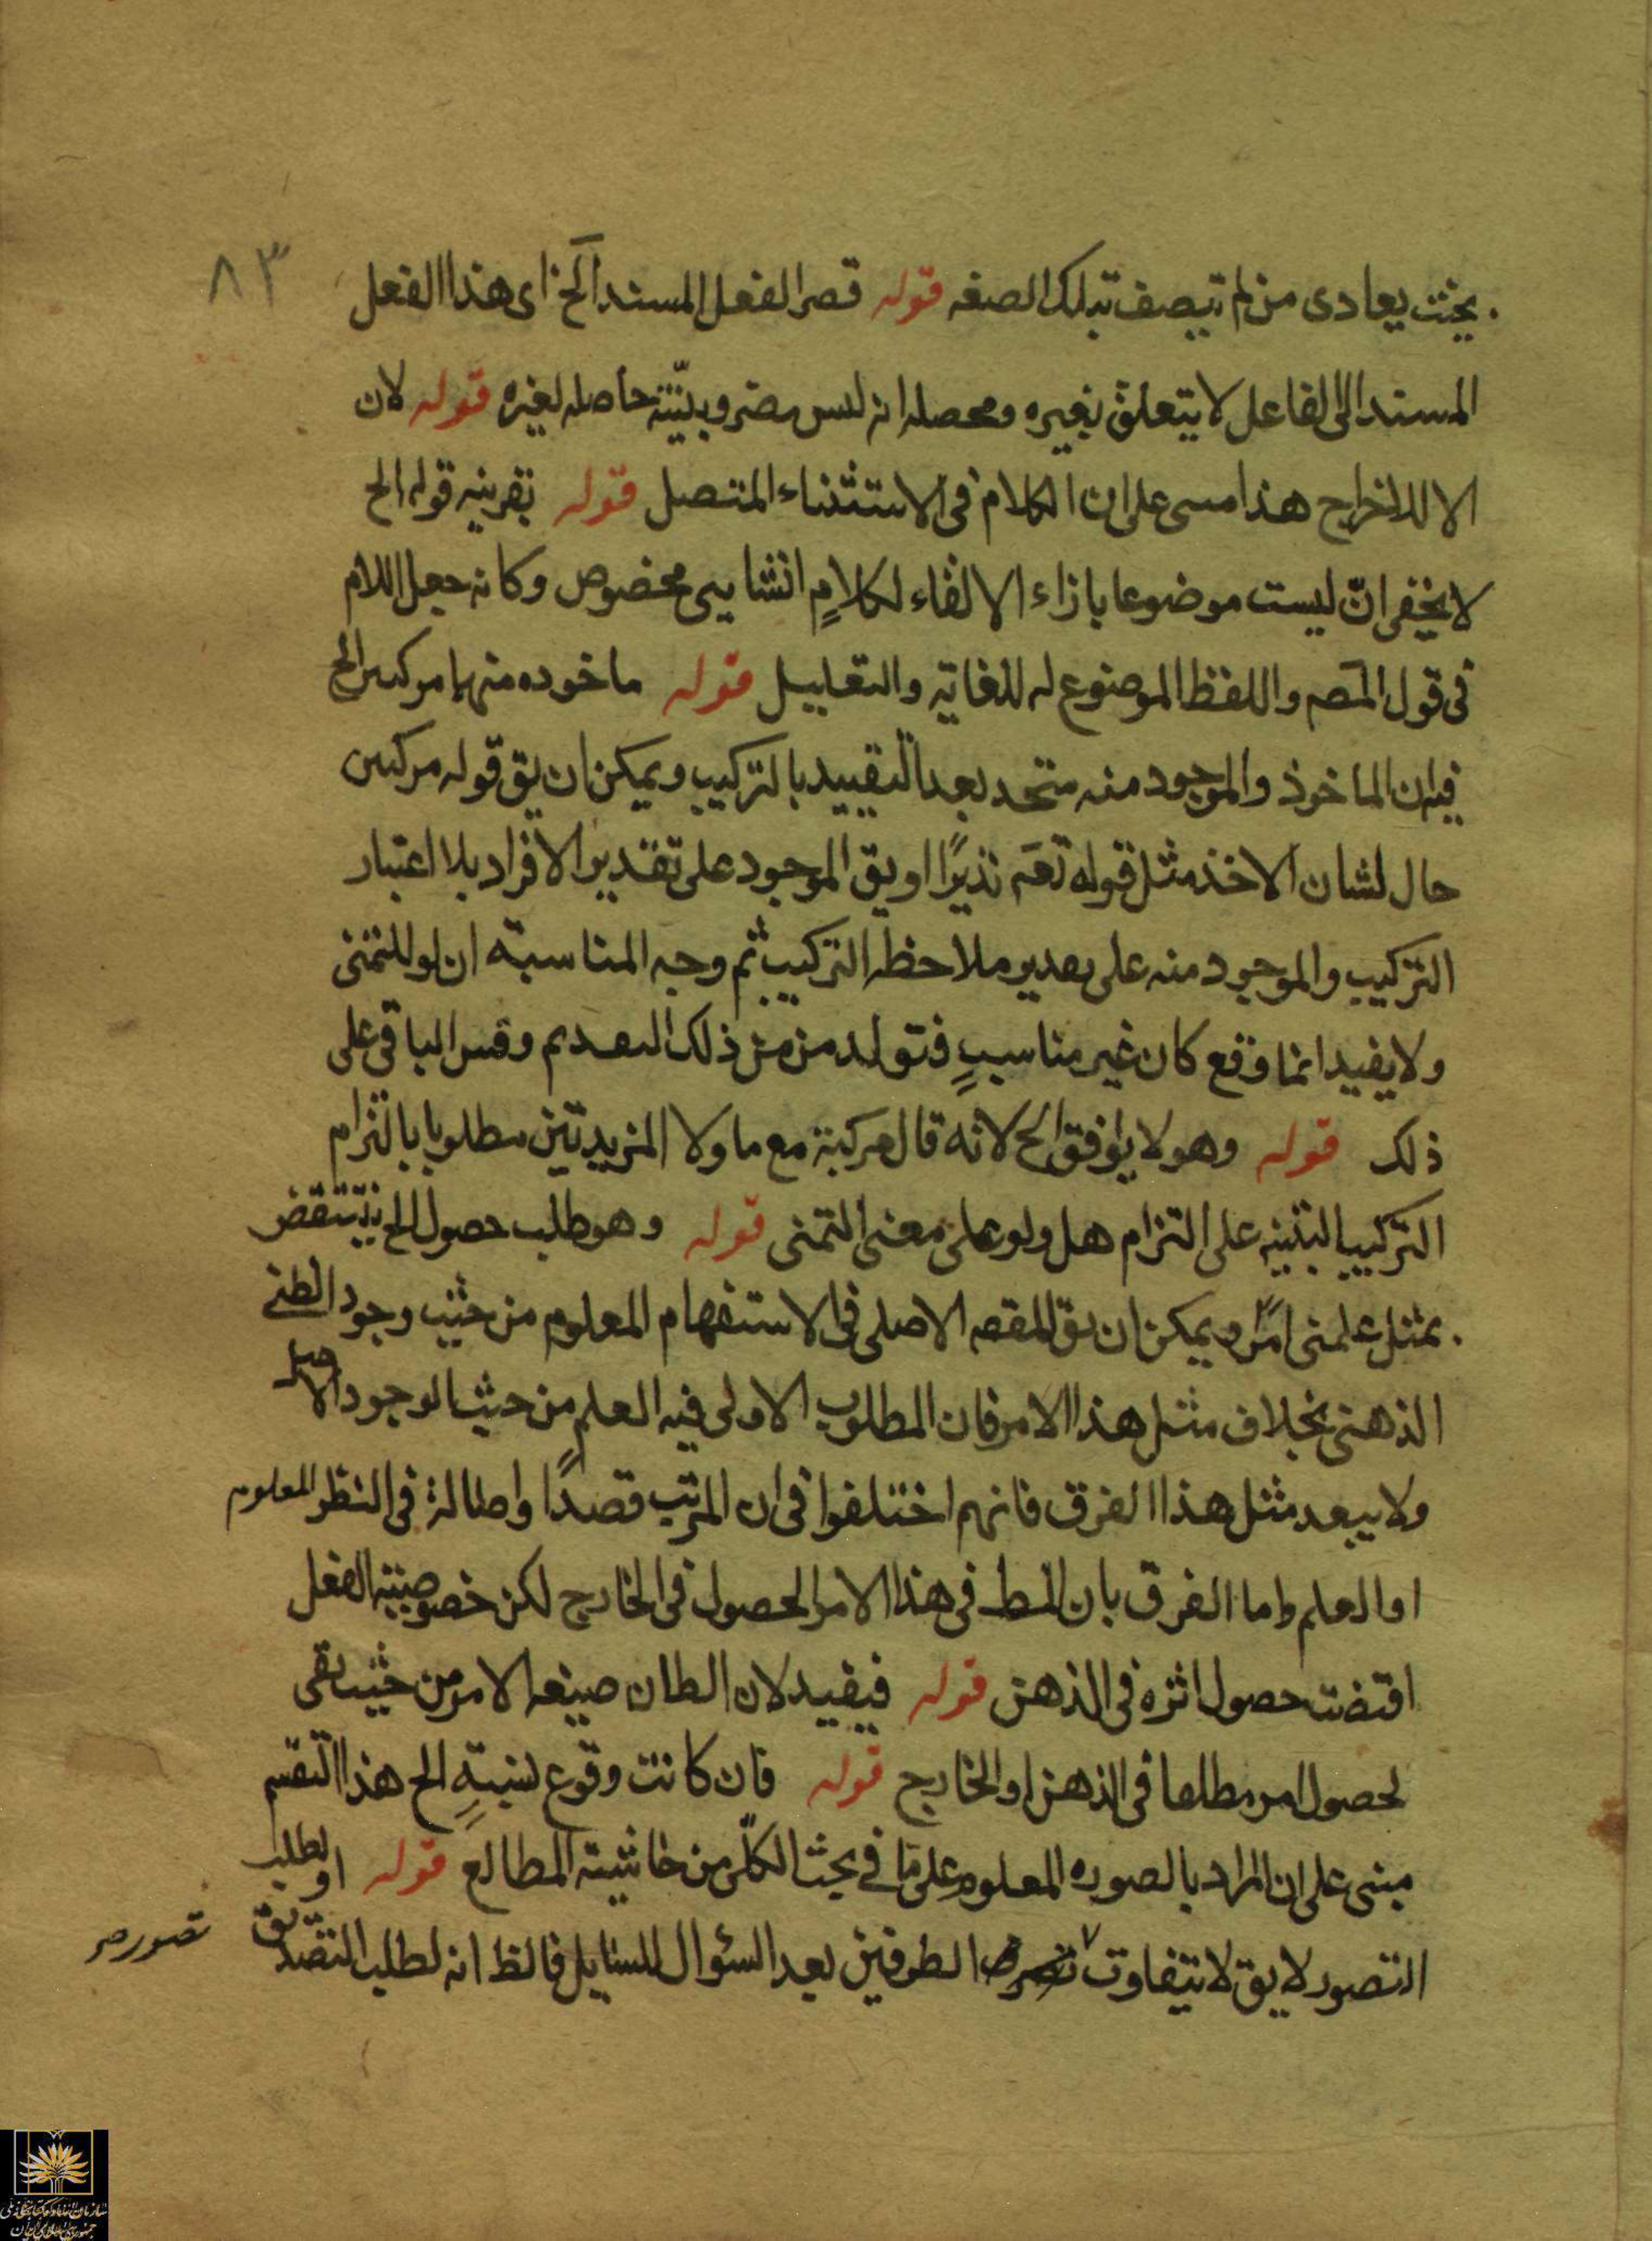 ٨٣
بحيث يعادى من لم تيصف تبلك الصفه قوله قصر الفعل المسند الخ اى هذا الفعل
المسند الى الفاعل لا يتعلق بغيره ومحصله انه ليس مضروبيّته حاصله لغيره قوله لان
الا للاخراج هذا مبنى على ان الكلام فى الاستثناء المتصل قوله بقرينه قوله الخ
لا يخفى انّ ليست موضوعا بازاء الالقاء لكلامٍ انشايى مخصوص وكانه جعل اللام
فى قول المصم واللفظ الموضوع له للغاية والتعليل قوله ماخوده منهما مركبين الخ
فيه ان الماخوذ والموجود منه متحد بعد التقييد بالتركيب ويمكن ان يق قوله مركبين
حال لشان الاخذ مثل قوله تعم نذيرًا او يق الموجود على تقدير الافراد بلا اعتبار
التركيب والموجود منه على تقدير ملاحظه التركيب ثم وجه المناسبة ان لو للتمنى
ولا يفيد انما وقع كان غير مناسبٍ فتولد من ذلك التعديم وقس الباقى على
ذلك قوله وهو لا يوافق الخ لانه قال مركبة مع ما ولا المزيدتين مطلوبا بالتزام
التركيب التنبيه على التزام هل ولو على معنى التمنى قوله وهو طلب حصول الخ ينتقض
بمثل علمنى امرًا ويمكن ان يق المقصه الاصلى فى الاستفهام المعلوم من حيث وجود الظنى
الذهنى بخلاف مثل هذا الامر فان المطلوب الاولى فيه العلم من حيث الوجود الاصل
ولا يبعد مثل هذا الفرق فانهم اختلفوا فى ان المرتب قصدًا واصالة فى النظر المعلوم
او العلم واما الفرق بان المط فى هذا الامر الحصول فى الخارج لكن خصوصيته الفعل
اقتضت حصول اثره فى الذهن قوله فيقيد لان الطان صيغه الامر من حيث
لحصول امر مطلعا فى الذهن او الخارج قوله فان كانت وقوع نسبةٍ الخ هذا التقسم
مبنى على ان المراد بالصوره المعلوم على ما فى بحث الكلّى من حاشية المطالع قوله او لطلب
التصور لا يق لا يتفاوت الطرفين بعد السئوال للسايل فالظ انه لطلب التصديق
تصور صر